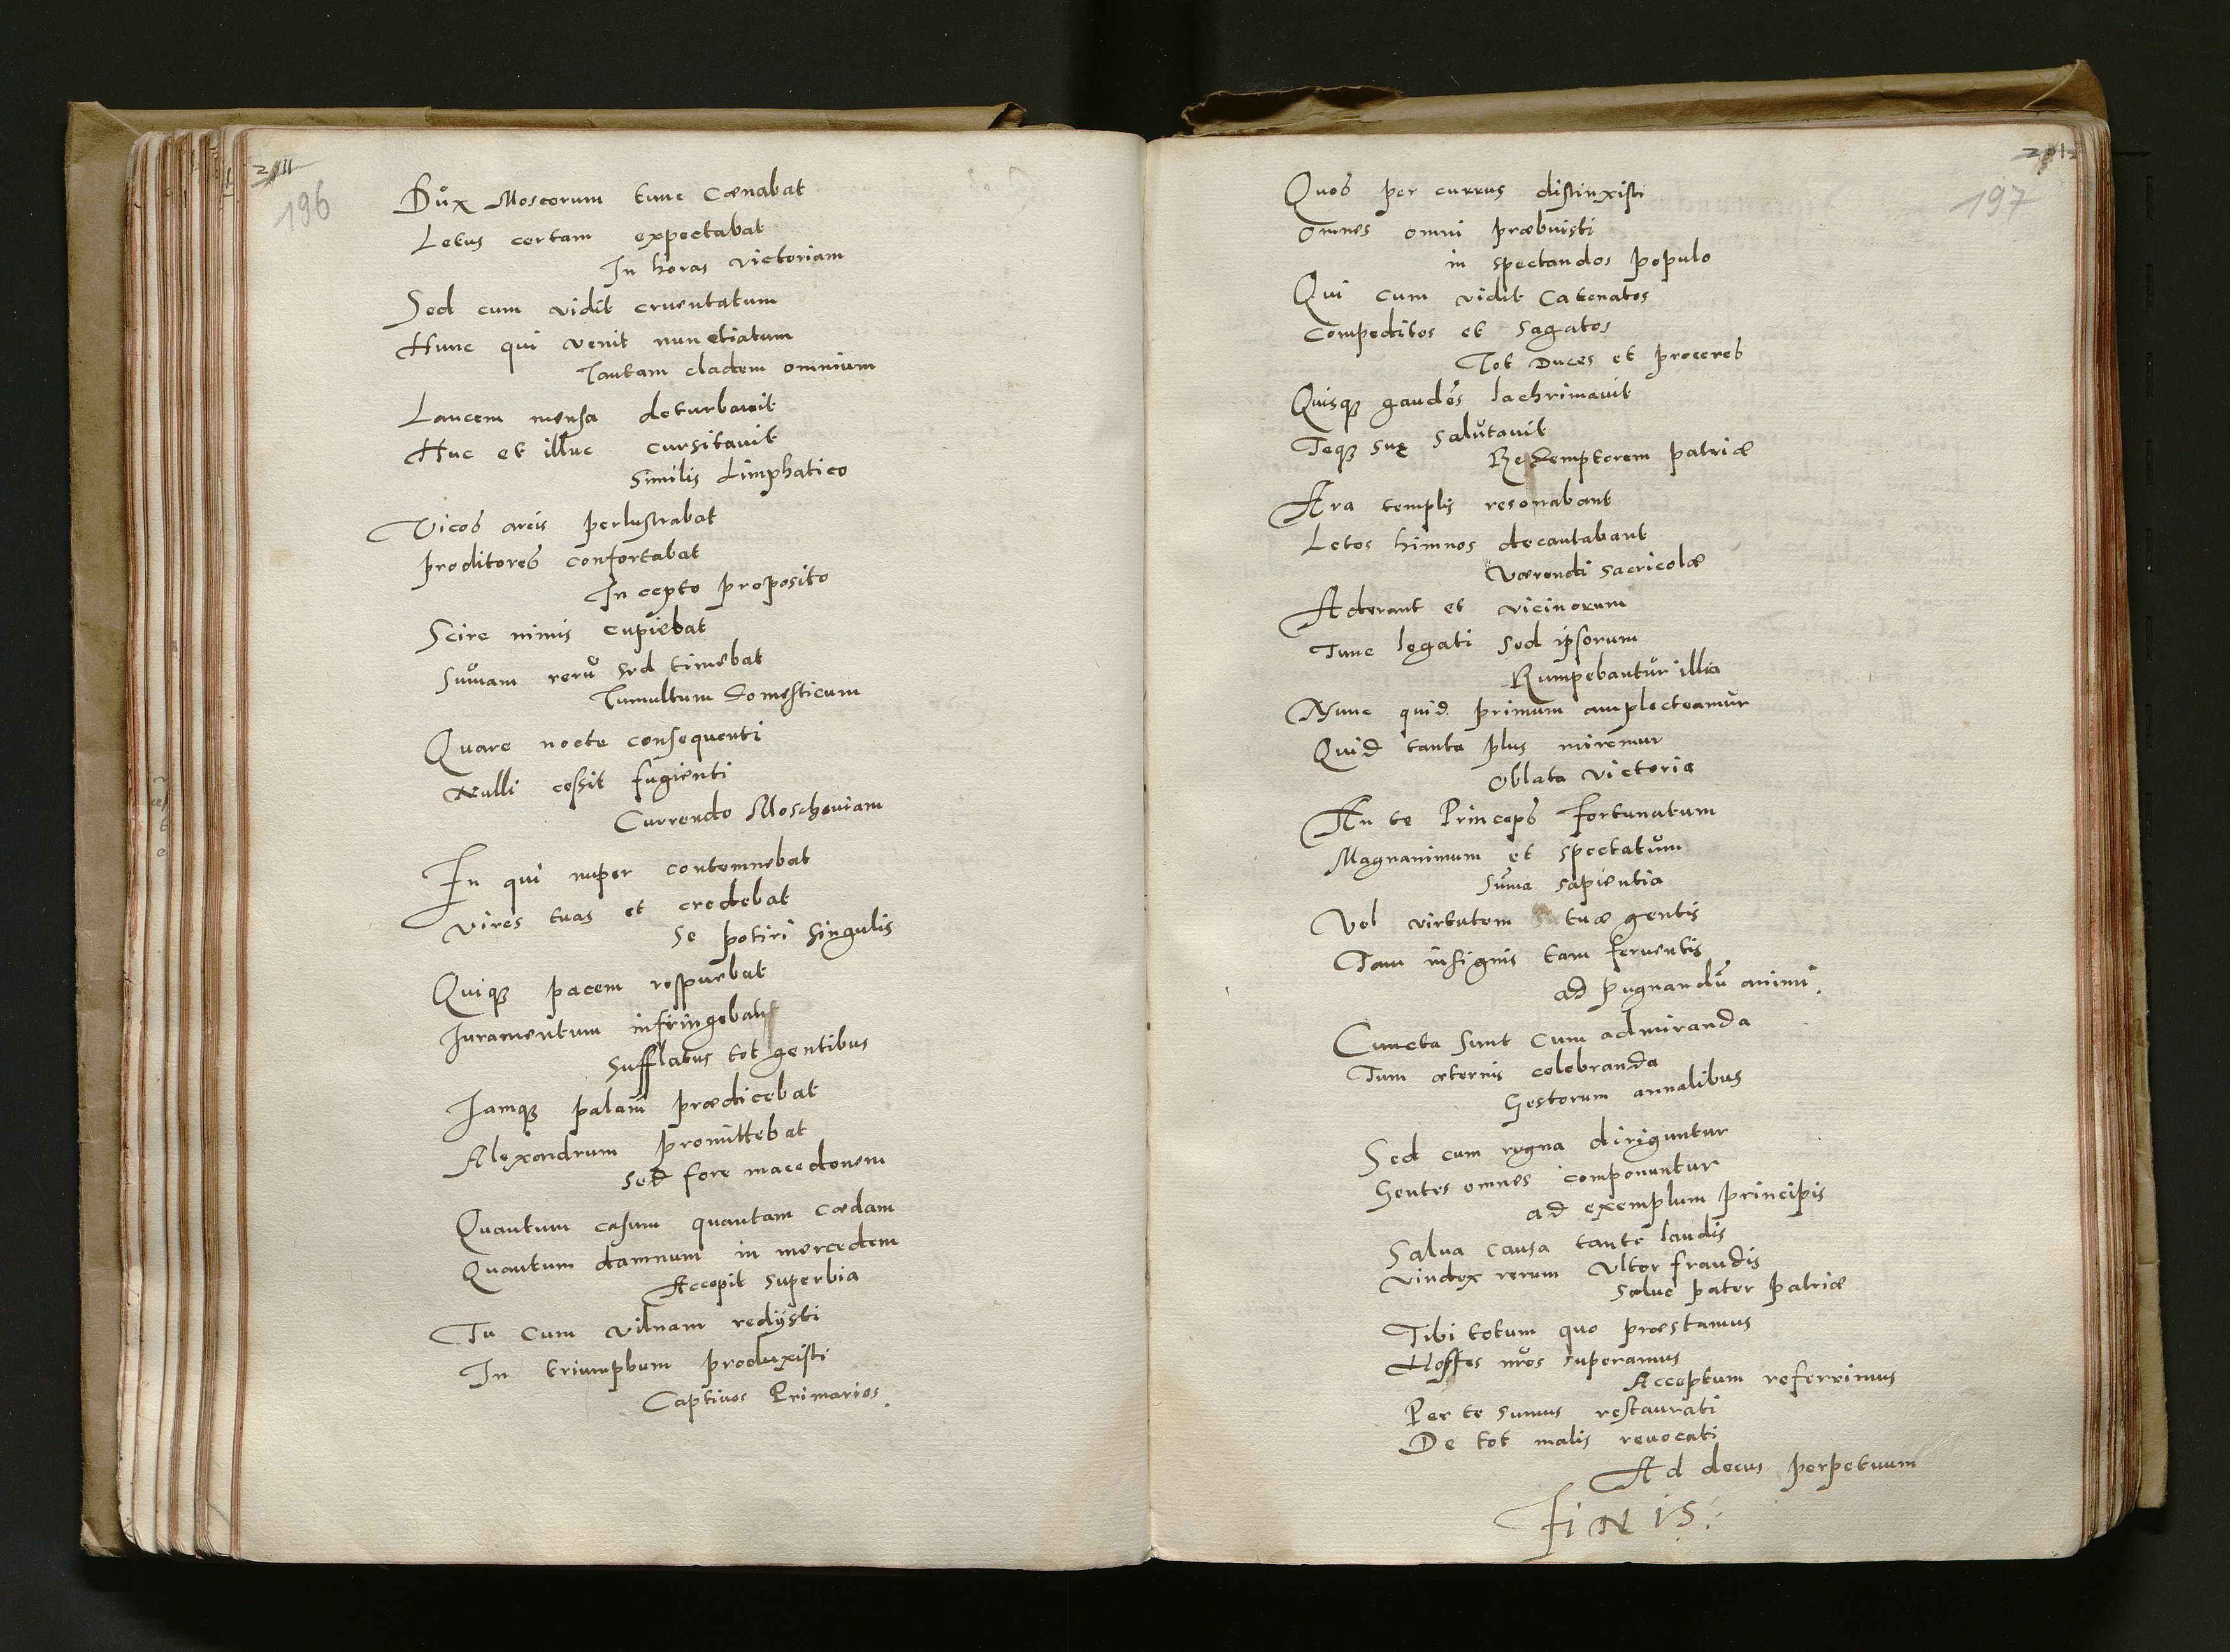 211
196
Dux Moscorum tunc Cœnabat
Letus certam expectabat
In horas victoriam
Sed cum vidit cruentatum
Hunc qui venit nunctiatum
Tantam cladem omnium
Lancem mensa deturbauit
Huc et illuc cursitauit
Similis Limphatico
Vicos arcis perlustrabat
proditores confortabat
In cepto proposito
Scire nimis cupiebat
Sum̃am rerũ sed timebat
Tumultum domesticum
Quare nocte consequenti
Nulli cessit fugienti
Currendo Moschouiam
En qui nuper contemnebat
vires tuas et credebat
Se potiri singulis
Quiqʒ pacem respuebat
Iuramentum infringebat
Sufflatus tot gentibus
Iamqʒ palam prædicebat
Alexandrum promittebat
Sed fore macedonem
Quantum casum quantam cædam
Quantum damnum in mercedem
Accepit superbia
Tu cum vilnam redijsti
In triumphum produxisti
Captiuos Primarios.
197
Quos per currus distinxisti
omnes omni præbuisti
in spectandos populo
Qui cum vidit Catenatos
Compeditos et sagatos
Tot Duces et proceres
Quisqʒ gaudẽs lachrimauit
Teqʒ suę salutauit
Redemptorem patriæ
Æra templis resonabant
Letos himnos decantabant
Værendi sacricolæ
Aderant et vicinorum
Tunc legati sed ipsorum
Rumpebantur illia
Nunc quid primum amplecteamur
Quid tanta plus miremur
Oblata victoria
An te Princeps fortunatum
Magnanimum et spectatum
Sum̃a sapientia
Vel virtutem tuæ gentis
Tam insignis tam feruentis
ad pugnandũ animi.
Cuncta sunt cum admiranda
Tum æternis celebranda
Gestorum annalibus
Sed cum regna diriguntur
Gentes omnes componuntur
ad exemplum principis
Salua causa tantę laudis
vindex rerum Vltor fraudis
Salue pater patriæ
Tibi totum quo præstamus
Hostes nr̃os superamus
Acceptum referrimus
Per te sumus restaurati
De tot malis reuocati
Ad decus perpetuum
FINIS.